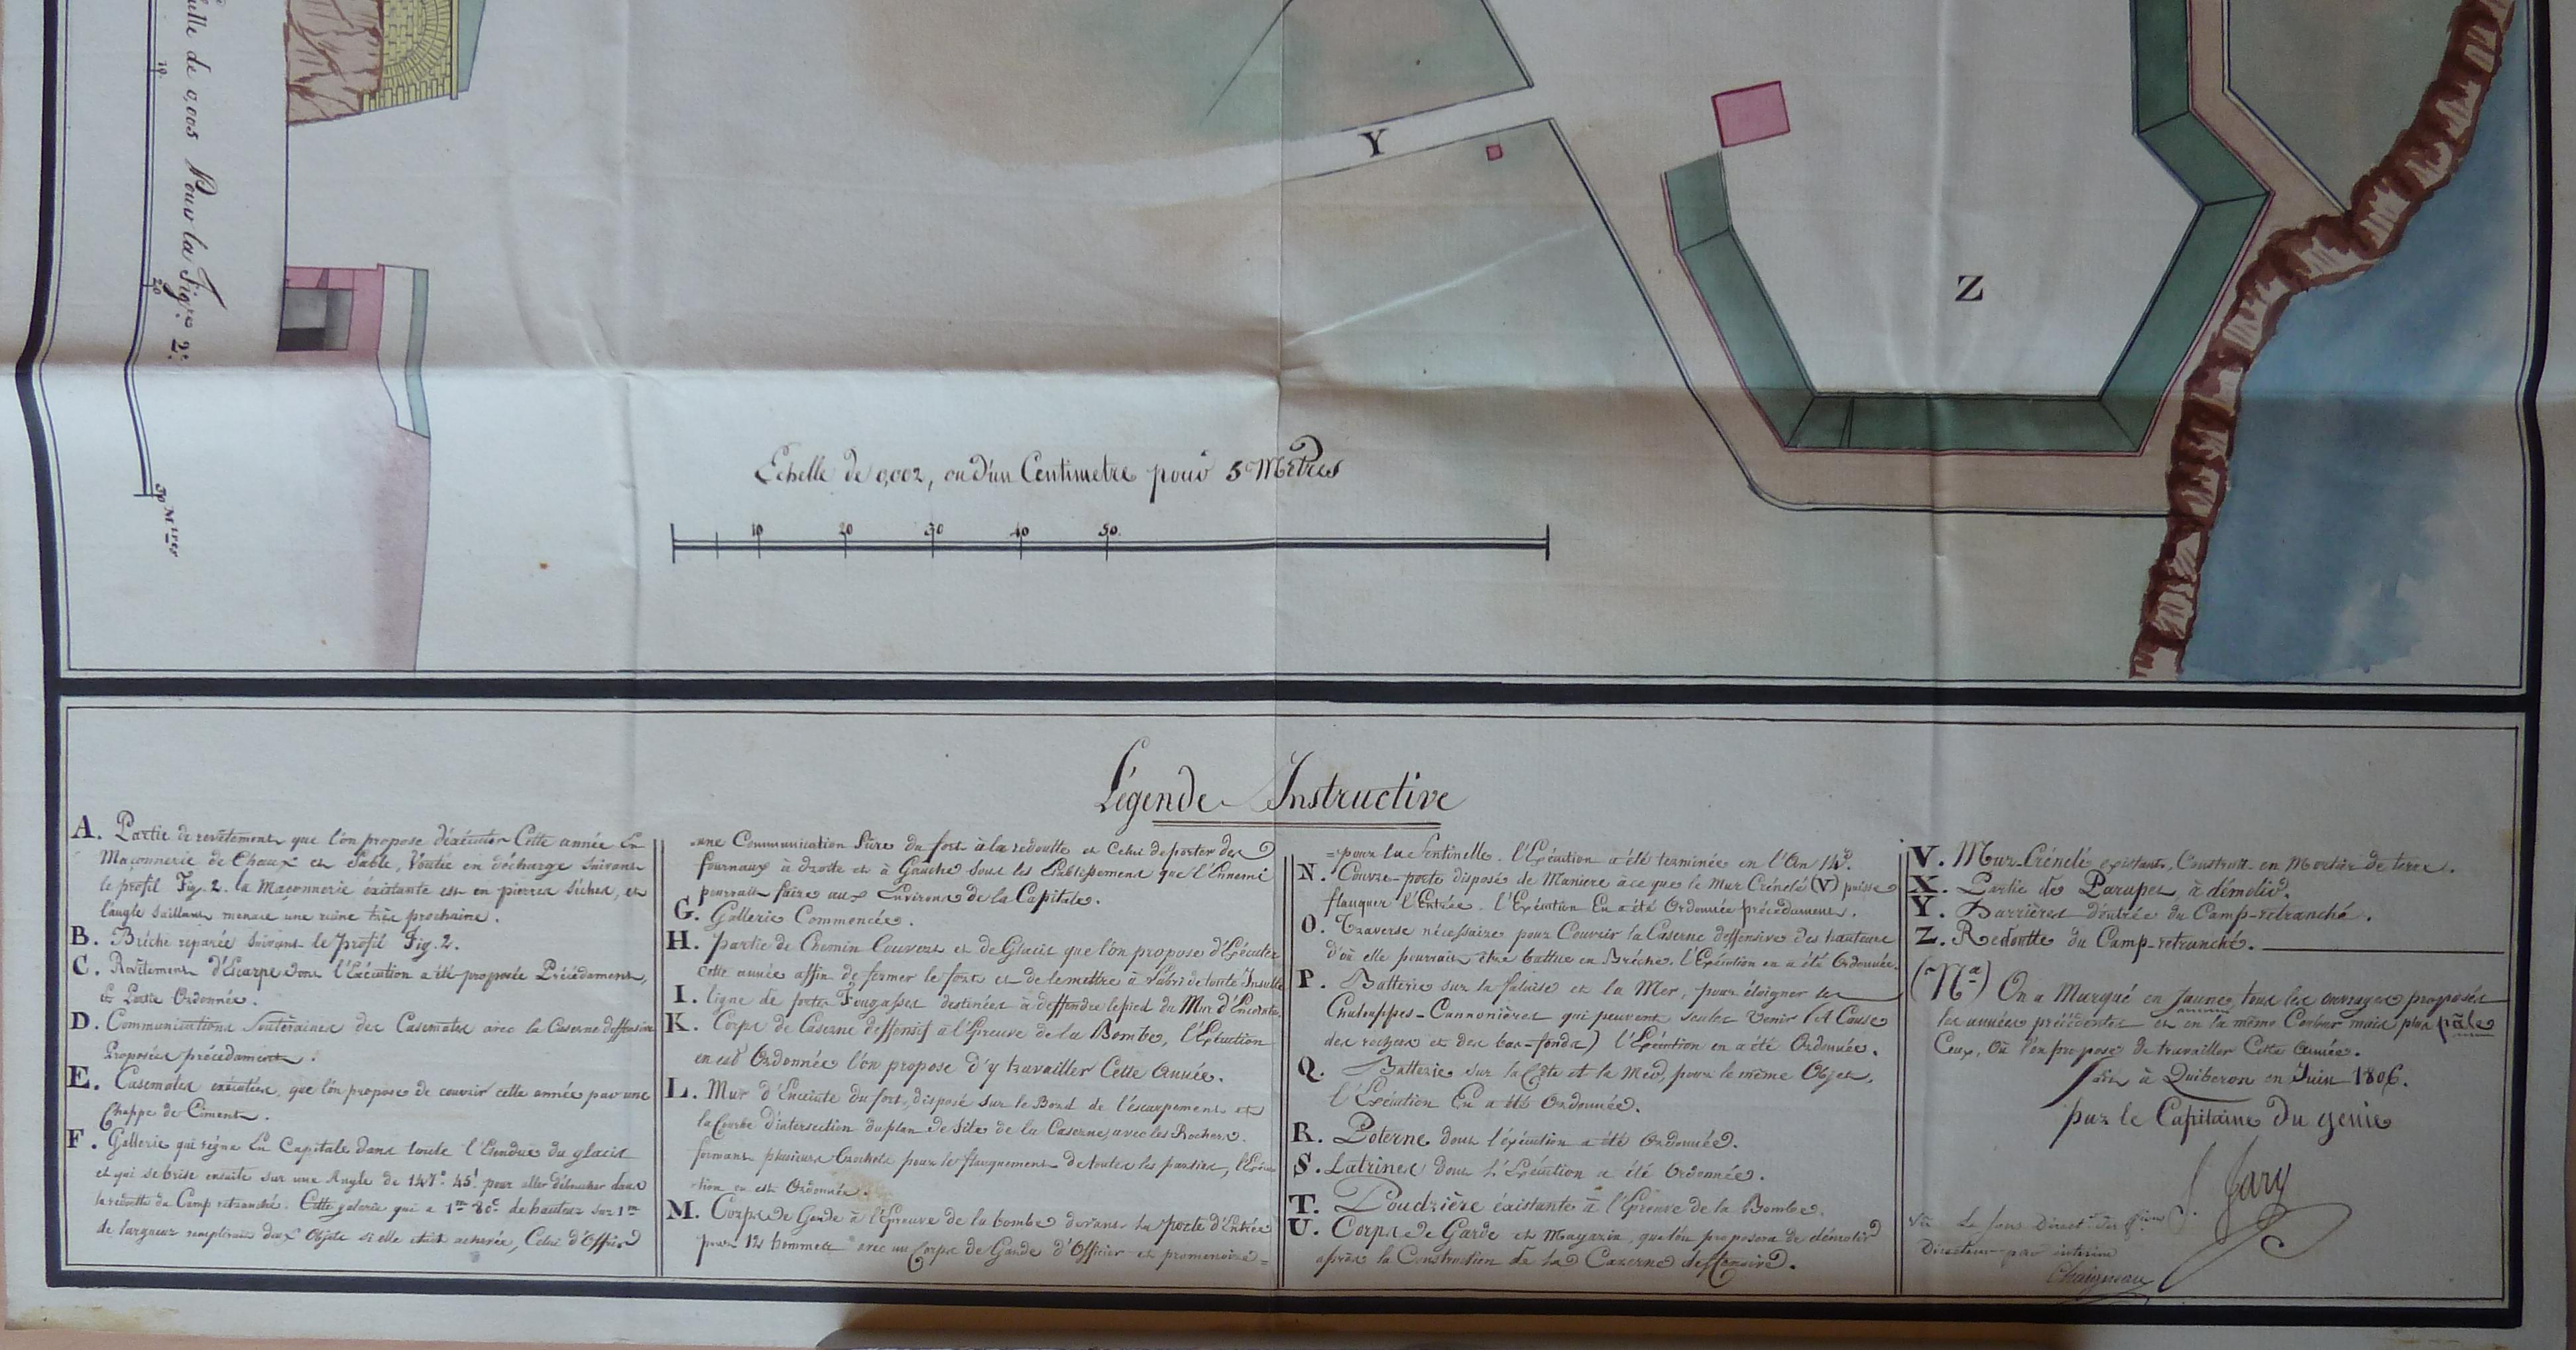 elle de 0,005 Pour la Fig.re 2.e
10
20
30 M.tres
Y
Z
Echelle de 0,002, ou d'un Centimetre pour 5 Mètres
10 20 30 40 50
Légende Instructive
A. Partie de revêtement que l'on propose d'éxécuter Cette année En
Maçonnerie de Chaux et Sable, Voutée en décharge suivant
le profil Fig. 2. la Maçonnerie éxistante est en pierres sèches, et
l'angle saillant menace une ruine très prochaine.
B. Brèche réparée suivant le profil Fig. 2.
C. Revêtement d'Escarpe dont l'Exécution a été proposée Précédament,
& Partie Ordonnée.
D. Communications Souteraines des Casemates avec la Caserne deffensive
Proposées précédament.
E. Casemates exécutées, que l'on propose de couvrir cette année par une
Chappe de Ciment.
F. Gallerie qui règne En Capitale dans toute l'Etendue du glacis
et qui se brise ensuite sur une Angle de 147° 45' pour aller déboucher dans
la redoutte du Camp retranché. Cette galerie qui a 1m 80c de hauteur sur 1m
de largeur remplirait deux Objets si elle était achevée, Celui d'Offrir
une Communication Sûre du fort à la redoutte et Celui de porter des
fournaux à droite et à Gauche sous les Etablissement que l'Ennemi
pourrait faire aux Environs de la Capitale.
G. Gallerie Commencée.
H. partie de Chemin Couvert et de Glacis que l'on propose d'Exécuter
Cette année affin de fermer le fort et de le mettre à l'abri de toute Insulte
I. ligne de fortes Fougasses destinées à deffendre le pied du Mur d'Enceinte
K. Corps de Caserne deffensif à l'Epreuve de la Bombe, l'Exécution
en est Ordonnée l'on propose d'y travailler Cette Année.
L. Mur d'Enceinte du fort, disposé sur le Bord de l'éscarpement et
la Courbe d'intersection du plan de Site de la Caserne, avec les Rochers.
formant plusieurs Crochets pour le flanquement de toutes les parties, l'Exécu
-tion en est Ordonnée.
M. Corps de Garde à l'Epreuve de la bombe devant la porte d'Entrée
pour 12 hommes avec un Corps de Garde d'Officier et promenoire =
= pour la Sentinelle. l'Exécution a été terminée en l'An 14.
N. Couvre-porte disposé de Maniere à ce que le Mur Crénelé (V) puisse
flanquer l'Entrée. l'Exécution En a été Ordonnée précédament.
O. Traverse nécessaire pour Couvrir la Caserne deffensive des hauteurs
d'où elle pourrait être battue en Brèche. l'Exécution en a été Ordonnée.
P. Batterie sur la falaise et la Mer, pour éloigner les
Chalouppes-Cannonières qui peuvent seules Venir (A Cause
des rochers et des bas-fonds) l'Exécution en a été Ordonnée.
Q. Batterie sur la Côte et la Mer, pour le même Objet,
l'Exécution En a été Ordonnée.
R. Poterne dont l'éxécution a été Ordonnée.
S. Latrines dont L'Exécution a été Ordonnée.
T. Poudrière éxistante à l'Epreuve de la Bombe.
U. Corps de Garde et Magazin, que l'on proposera de démolir
après la Construction de la Cazerne deffensive.
V. Mur Crénelé existant, Construit en Mortier de terre.
X. Partie de Parapet à démolir.
Y. Barrières d'entrée du Camp-retranché.
Z. Redoutte du Camp-retranché.
(Na) On a Marqué en Jaune, tous les ouvrages proposés
les années précédentes et en la même Couleur mais plus pâle
Ceux, Où l'on propose de travailler Cette Année.
Fait à Quiberon en Juin 1806.
par le Capitaine du genie
J. Jary
Vu Le Sous Direct.r des
Directeur par interim
Chaigneau